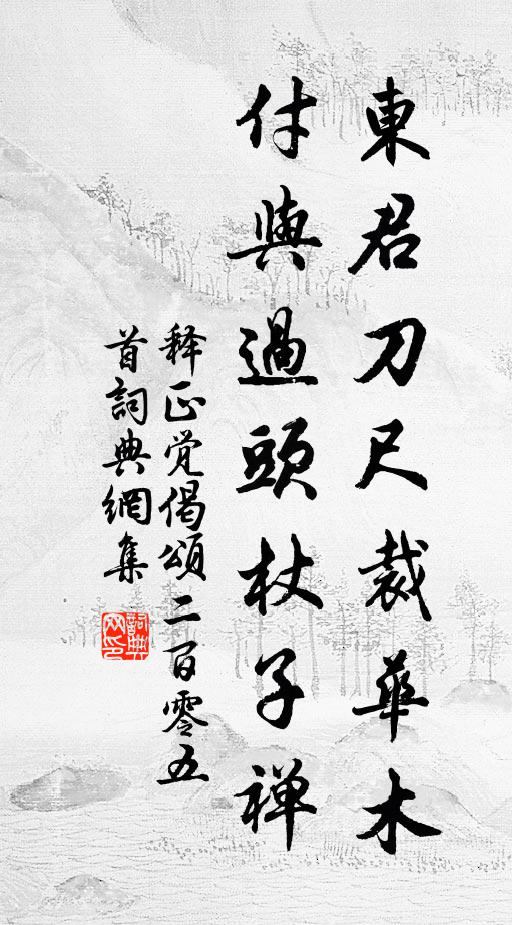 東君刀尺裁華木
付與過頭杖子禅
释正觉偈頌二百零五
首詞典網集
詞典网印